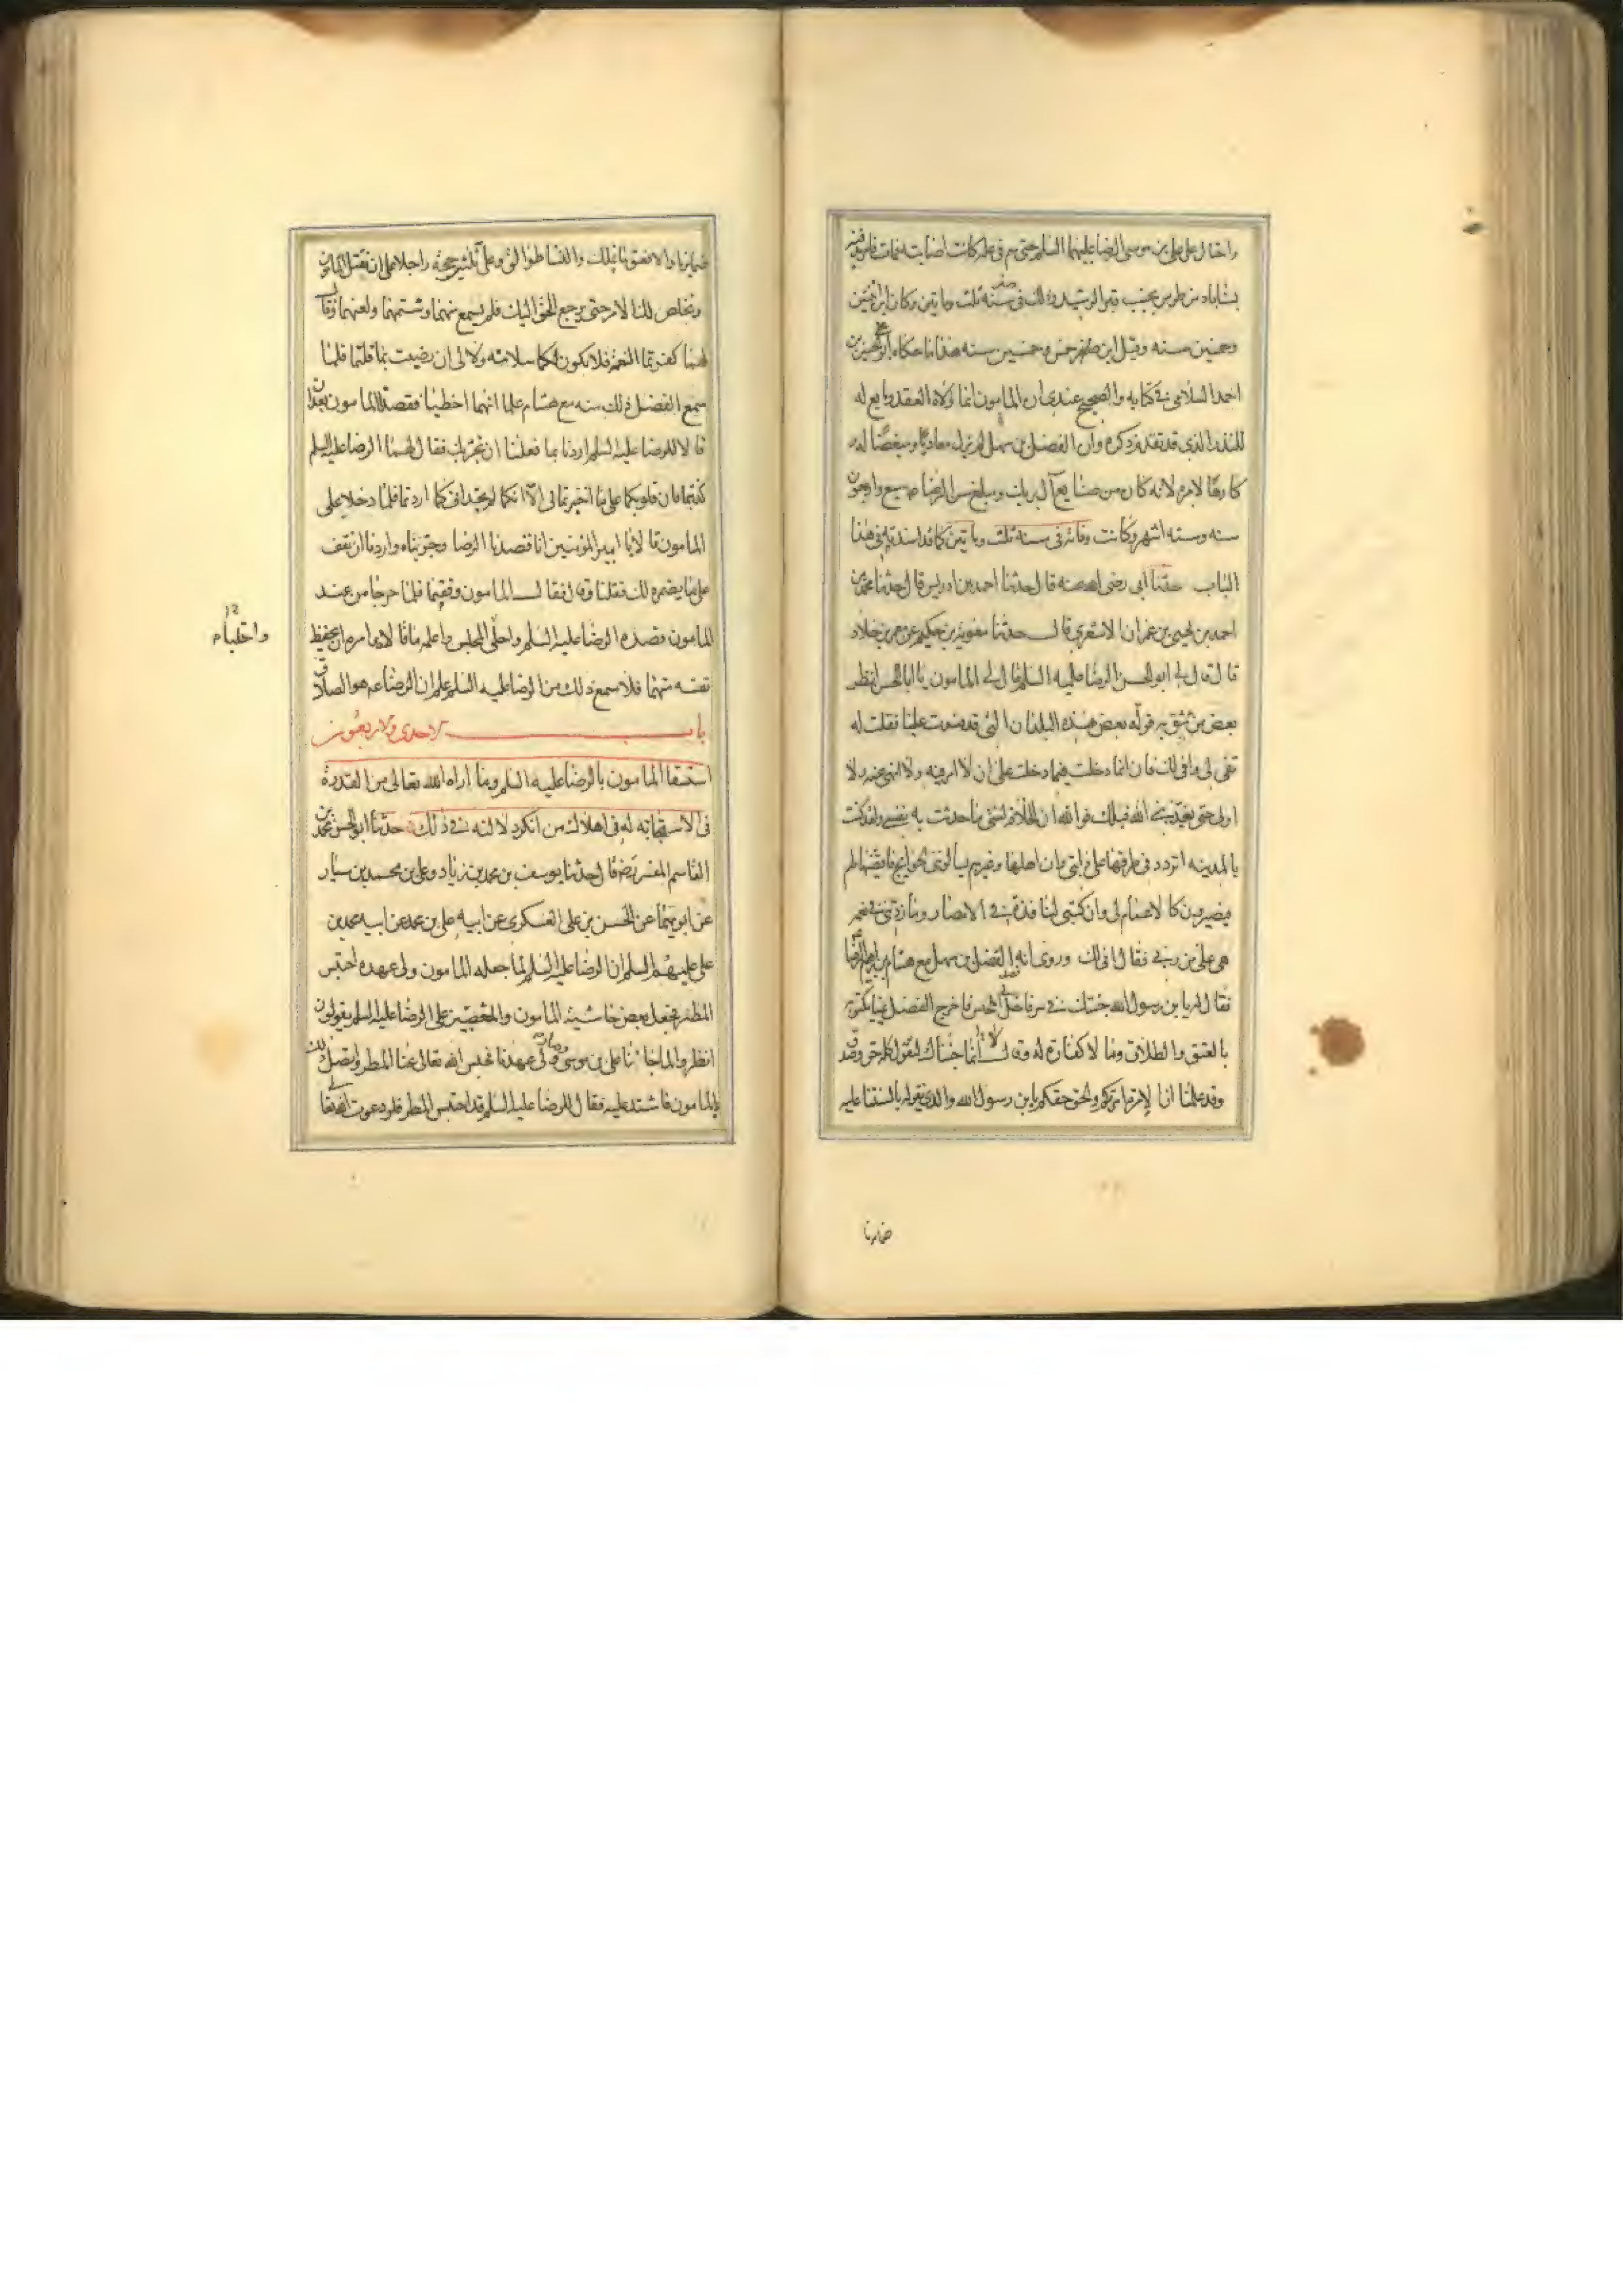 واحتال على علي بن موسى الرضا عليهما السلم حتى سم في علة كانت اصابت فمات فامر بدفنه
بسناباد من طوس بجنب قبر الرشيد وذلك في صفر سنه ثلث وماتين وكان ابن اثنين
وخمسين سنه وقيل ابن خمس وخمسين سنه هذا ما حكاه ابو علي الحسين بن
احمد السلامي في كتابه والصحيح عندي ان المامون انما ولاه العهد وبايع له
للنذر الذي قد تقدم ذكره وان الفضل بن سهل لم يزل معاديا ومبغضا له و
كارها لامره لانه كان من صنايع آل برمك ومبلغ سن الرضا ع سبع واربعون
سنه وسته اشهر وكانت وفاته في سنة ثلث وماتين كما قد اسندته في هذا
الباب حدثنا ابي رضي الله عنه قال حدثنا احمد بن ادريس قال حدثنا محمد بن
احمد بن يحيى بن عمران الاشعري قال حدثنا معويه بن حكيم عن معمر بن خلاد
قال قال لي ابو الحسن الرضا عليه السلم قال لي المامون يا ابا الحسن انظر
بعض من تثق به توله بعض هذه البلدان التي قد فسدت علينا فقلت له
تفي لي واوفي لك فان انما دخلت فيما دخلت على ان لا امر فيه ولا انهى عنه ولا
اولى حتى يقدمني الله قبلك فوالله ان الخلافة لشئ ما حدثت به نفسي ولقد كنت
بالمدينه اتردد في طرقها على دابتي وان اهلها وغيرهم يسالوني الحوايج فاقضيها لهم
فيصيرون كالاعمام لي وان كتبي لنافذة في الامصار وما زدتني في نعمة
هي علي من ربي فقال افي لك وروي انه قصد الفضل بن سهل مع هشام بن ابراهيم الرضا
فقال له يا بن رسول الله جئتك في سر فاخل لي المجلس فاخرج الفضل يمينا مكتوبه
بالعتق والطلاق وما لا كفارة له وقالا له انما جئناك لنقول كلمة حق وصدق
وقد علمنا ان الامرة امرتكم والحق حقكم يا بن رسول الله والذي نقوله بالسنتنا عليه
ضمايرنا
ضمايرنا والا نعتق ما نملك والنساء طوالق وعلي ثلثين حجة راجلا على ان نقتل المامون
ونخلص لك الامر حتى يرجع الحق اليك فلم يسمع منهما وشتمهما ولعنهما وقال
لهما كفرتما النعمة فلا يكون لكما سلامته ولا لي ان رضيت بما قلتما فلما
سمع الفضل ذلك منه مع هشام علما انهما اخطئا فقصدا المامون بعد ان
قالا للرضا عليه السلم اردنا بما فعلنا ان نجربك فقال لهما الرضا عليه السلم
كذبتما فان قلوبكما على ما اخبرتماني الا انكما لم تجداني كما اردتما فلما دخلا على
المامون قالا يا امير المؤمنين انا قصدنا الرضا وجربناه واردنا ان نقف
على ما يضمره لك فقلنا وقال فقال المامون وفقتما فلما خرجا من عند
المامون قصده الرضا عليه السلم واخلى المجلس واعلمه ما قالا وامره ان يحفظ
واخليا م
نفسه منهما فلما سمع ذلك من الرضا عليه السلم علم ان الرضا ع هو الصادق
باب الاحدى والاربعون
استسقا المامون بالرضا عليه السلم وما اراه الله تعالى من القدرة
في الاستجابه له في اهلاك من انكر دلالته في ذلك حدثنا ابو الحسن محمد بن
القاسم المفسر رضه قال حدثنا يوسف بن محمد بن زياد وعلي بن محمد بن سيار
عن ابويهما عن الحسن بن علي العسكري عن ابيه علي بن محمد عن ابيه محمد بن
علي عليهم السلم ان الرضا عليه السلم لما جعله المامون ولي عهده احتبس
المطر فجعل بعض حاشية المامون والمتعصبين على الرضا عليه السلم يقولون
انظروا لما جائنا علي بن موسى وصار ولي عهدنا فحبس الله تعالى عنا المطر واتصل ذلك
بالمامون فاشتد عليه فقال للرضا عليه السلم قد احتبس المطر فلو دعوت الله تعالى